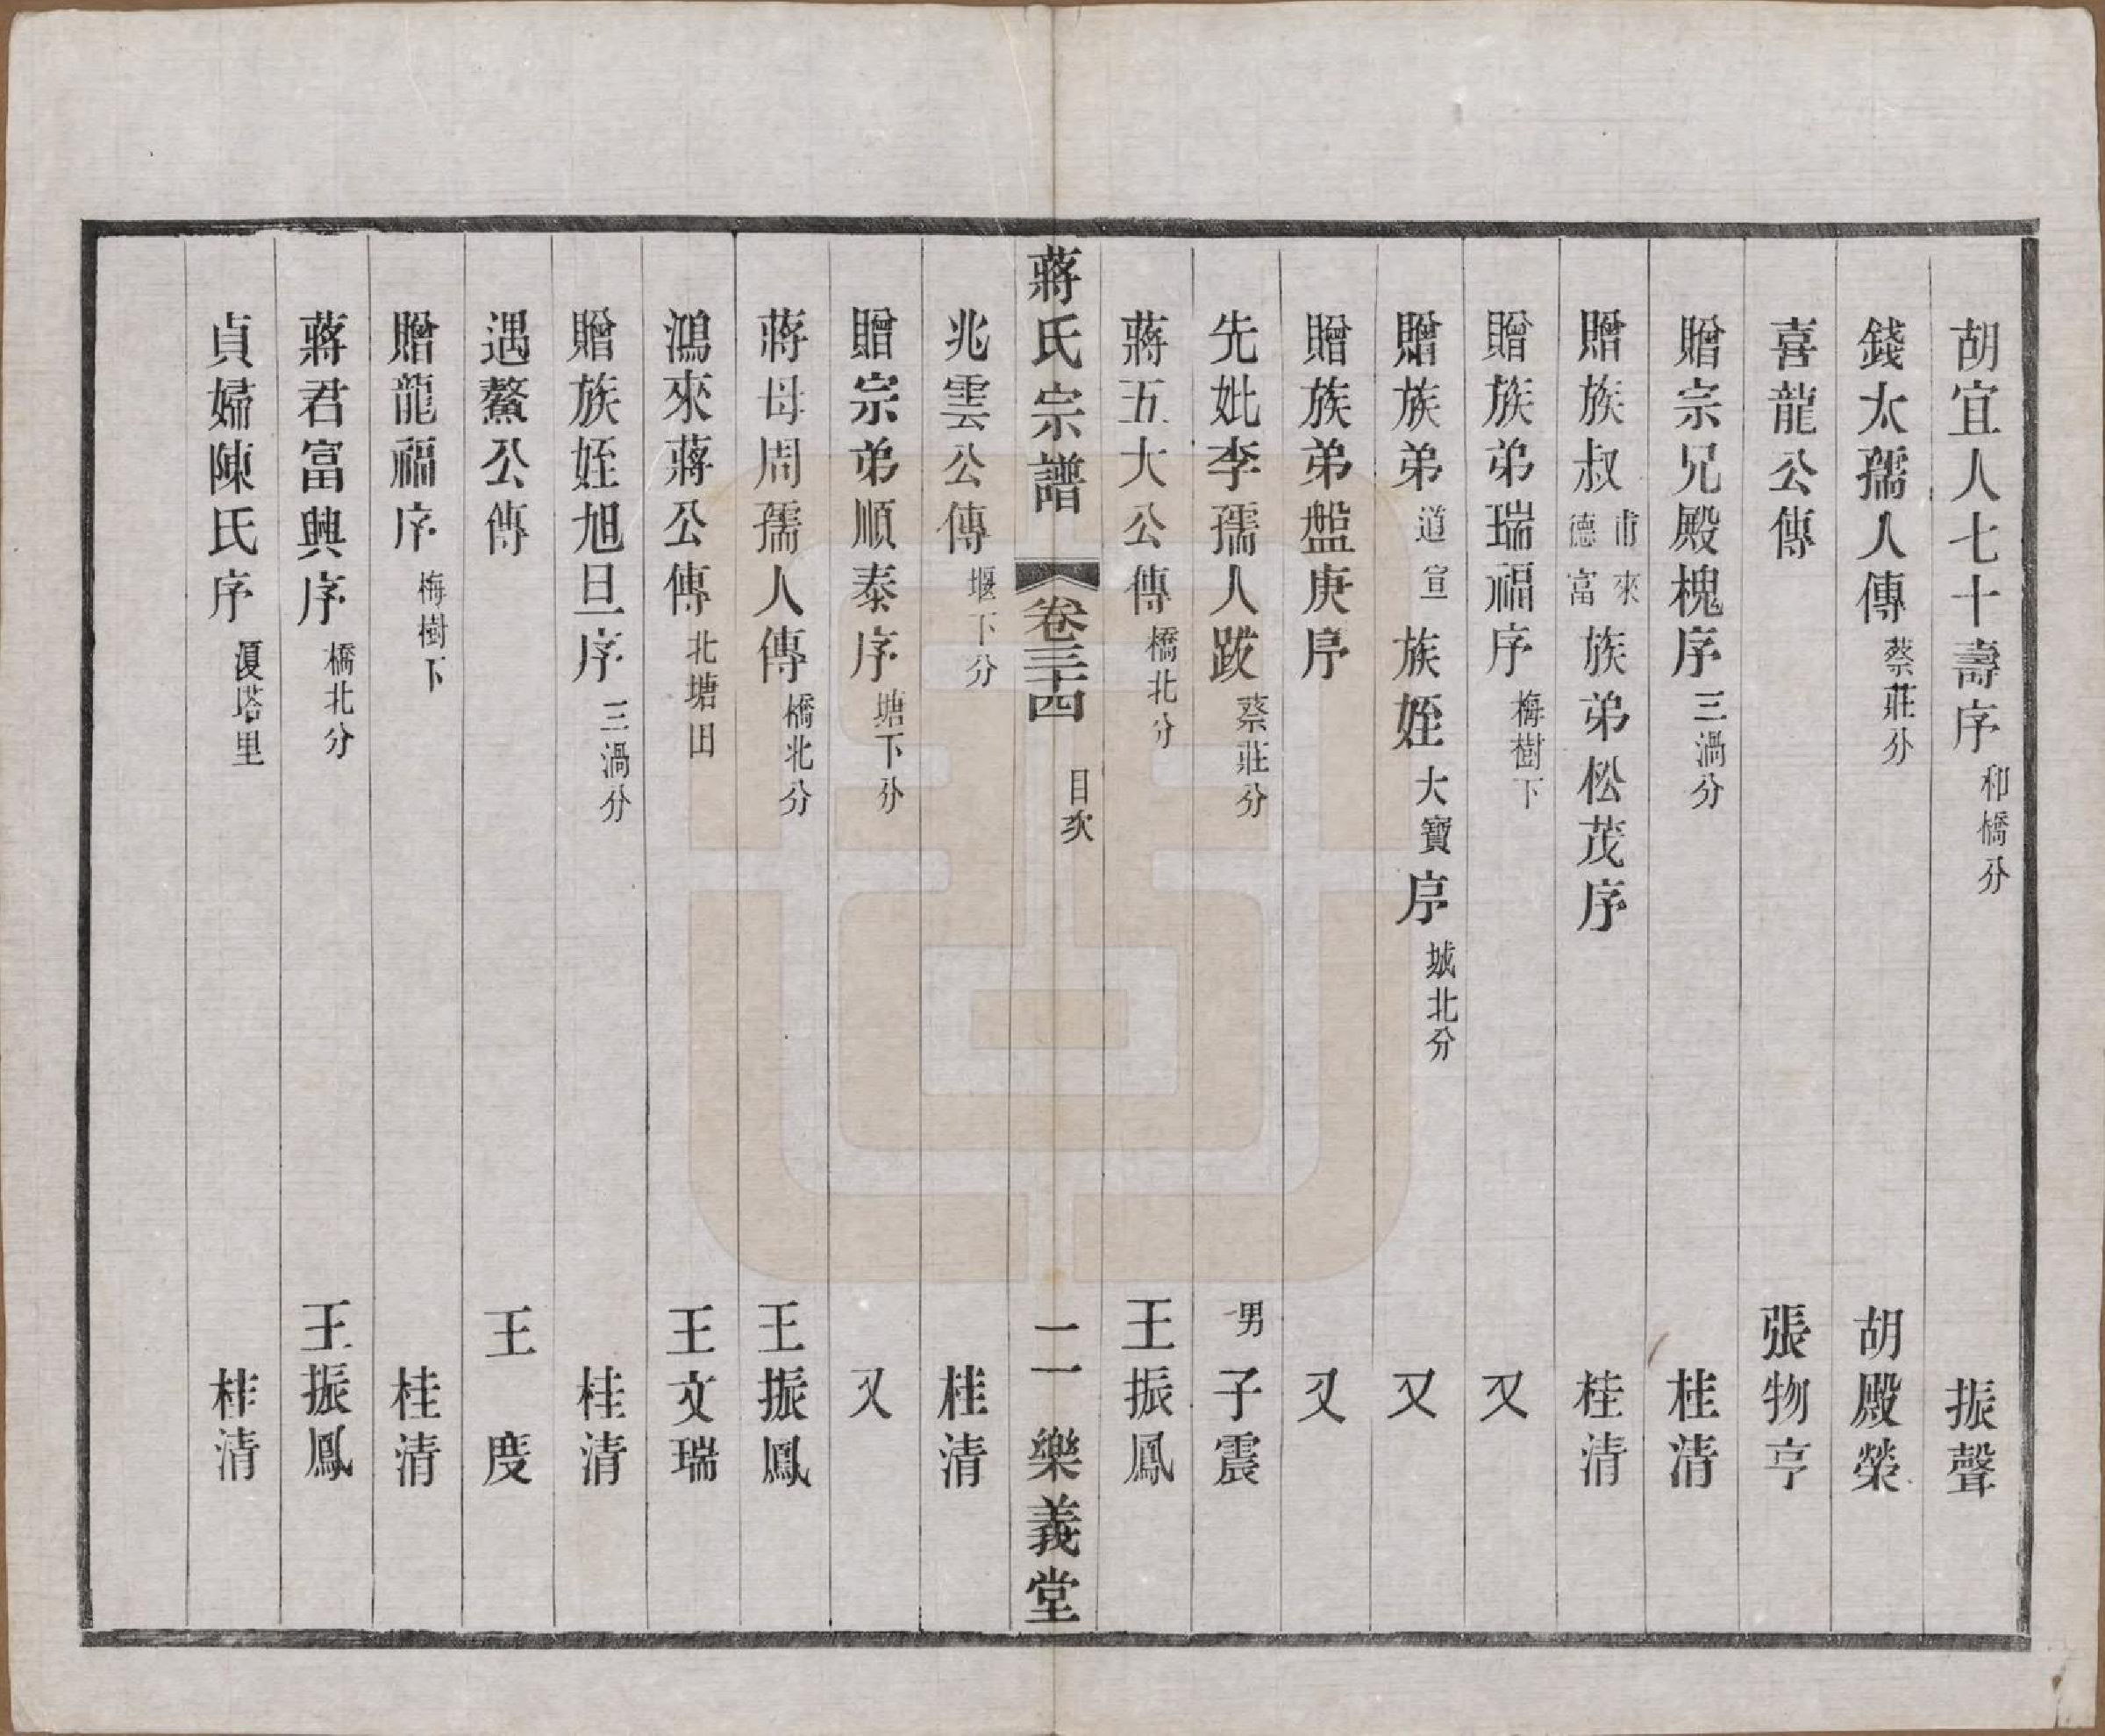 胡宜人七十壽序 和橋分 振聲
錢太孺人傳 蔡莊分 胡殿榮
喜龍公傳 張物亨
贈宗兄殿槐序 三渦分 桂清
贈族叔 甫來 德富 族弟松茂序 桂清
贈族弟瑞福序 梅樹下 又
贈族弟 道宣 族姪 大寶 序 城北分 又
贈族弟盤庚序 又
先妣李孺人跋 蔡莊分 男 子震
蔣五大公傳 橋北分 王振鳳
蔣氏宗譜 卷三十四 目次 二 一樂義堂
兆雲公傳 堰下分 桂清
贈宗弟順泰序 塘下分 又
蔣母周孺人傳 橋北分 王振鳳
鴻來蔣公傳 北塘田 王文瑞
贈族姪旭旦序 三渦分 桂清
遇鰲公傳 王度
贈龍福序 梅樹下 桂清
蔣君富興序 橋北分 王振鳳
貞婦陳氏序 塔里 桂清